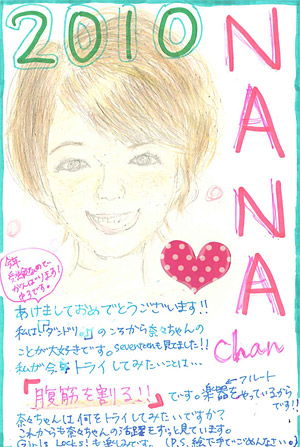 2010
NANA
chan
今年
がんばります!
あけましておめでとうございます!!
私は『ダンドリ。』のころから奈々ちゃんの
ことが大好きです。seventeenも見てました!!
私が今年トライしてみたいことは…
『腹筋を割る!!』です。楽器をやっているから
です!!
←フルート
奈々ちゃんは何をトライしてみたいですか?
これからも奈々ちゃんの活躍をずっと見ています。
Girls Locks!も楽しみです。(P.S. 絵下手でごめんなさい)